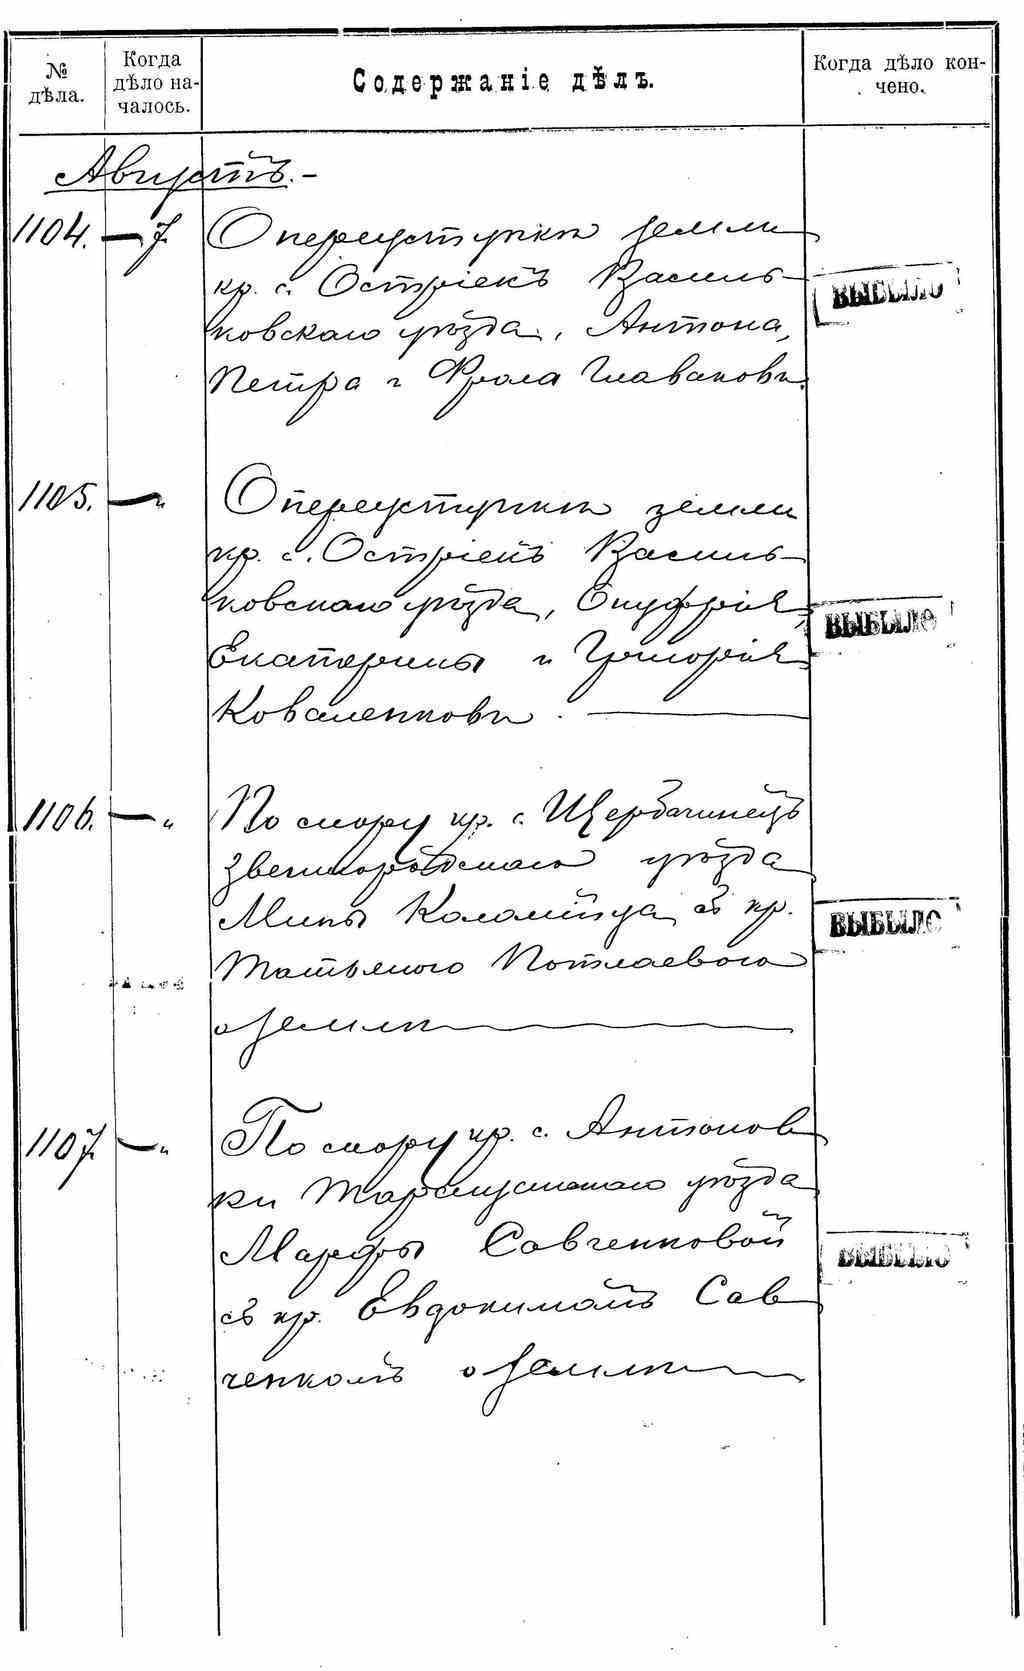 №
дѣла.
Когда
дѣло на-
чалось.
Содержаніе дѣлъ.
Когда дѣло кон-
чено.
Августъ.-
1104. — 7.
О переуступкѣ земли
кр. с. Острiекъ Василь-
ковскаго уѣзда, Антона,
Петра и Фрола Главаковы.
ВЫБЫЛО
1105. — "
О переуступкѣ земли
кр. с. Острiекъ Василь-
ковскаго уѣзда, Онуфрія,
Екатерины и Григорія
Коваленковы. —
ВЫБЫЛО
1106. — "
По спору кр. с. Щербачинецъ
Звенигородскаго уѣзда
Мины Коломійца съ кр.
о землѣ —
ВЫБЫЛО
1107. — "
По спору кр. с. Антонов
ки Таращанскаго уѣзда
Марфы Савченковой
съ кр. Евдокимомъ Сав
ченкомъ о землѣ —
ВЫБЫЛО